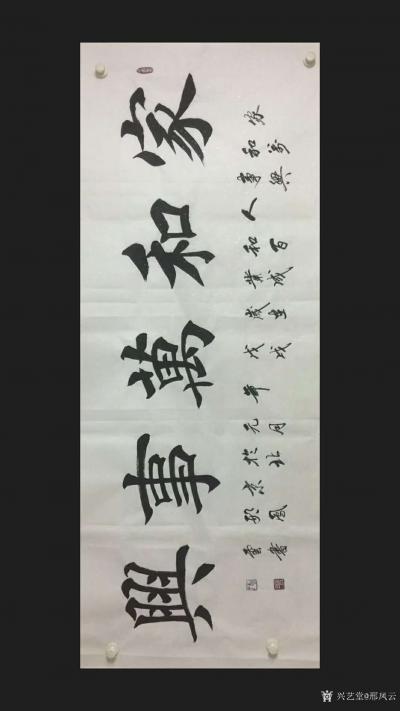 家和萬事興
家和萬事興人和百業成歲在戊戌年元月於北京邢鳳雲書
兴艺堂@邢凤云